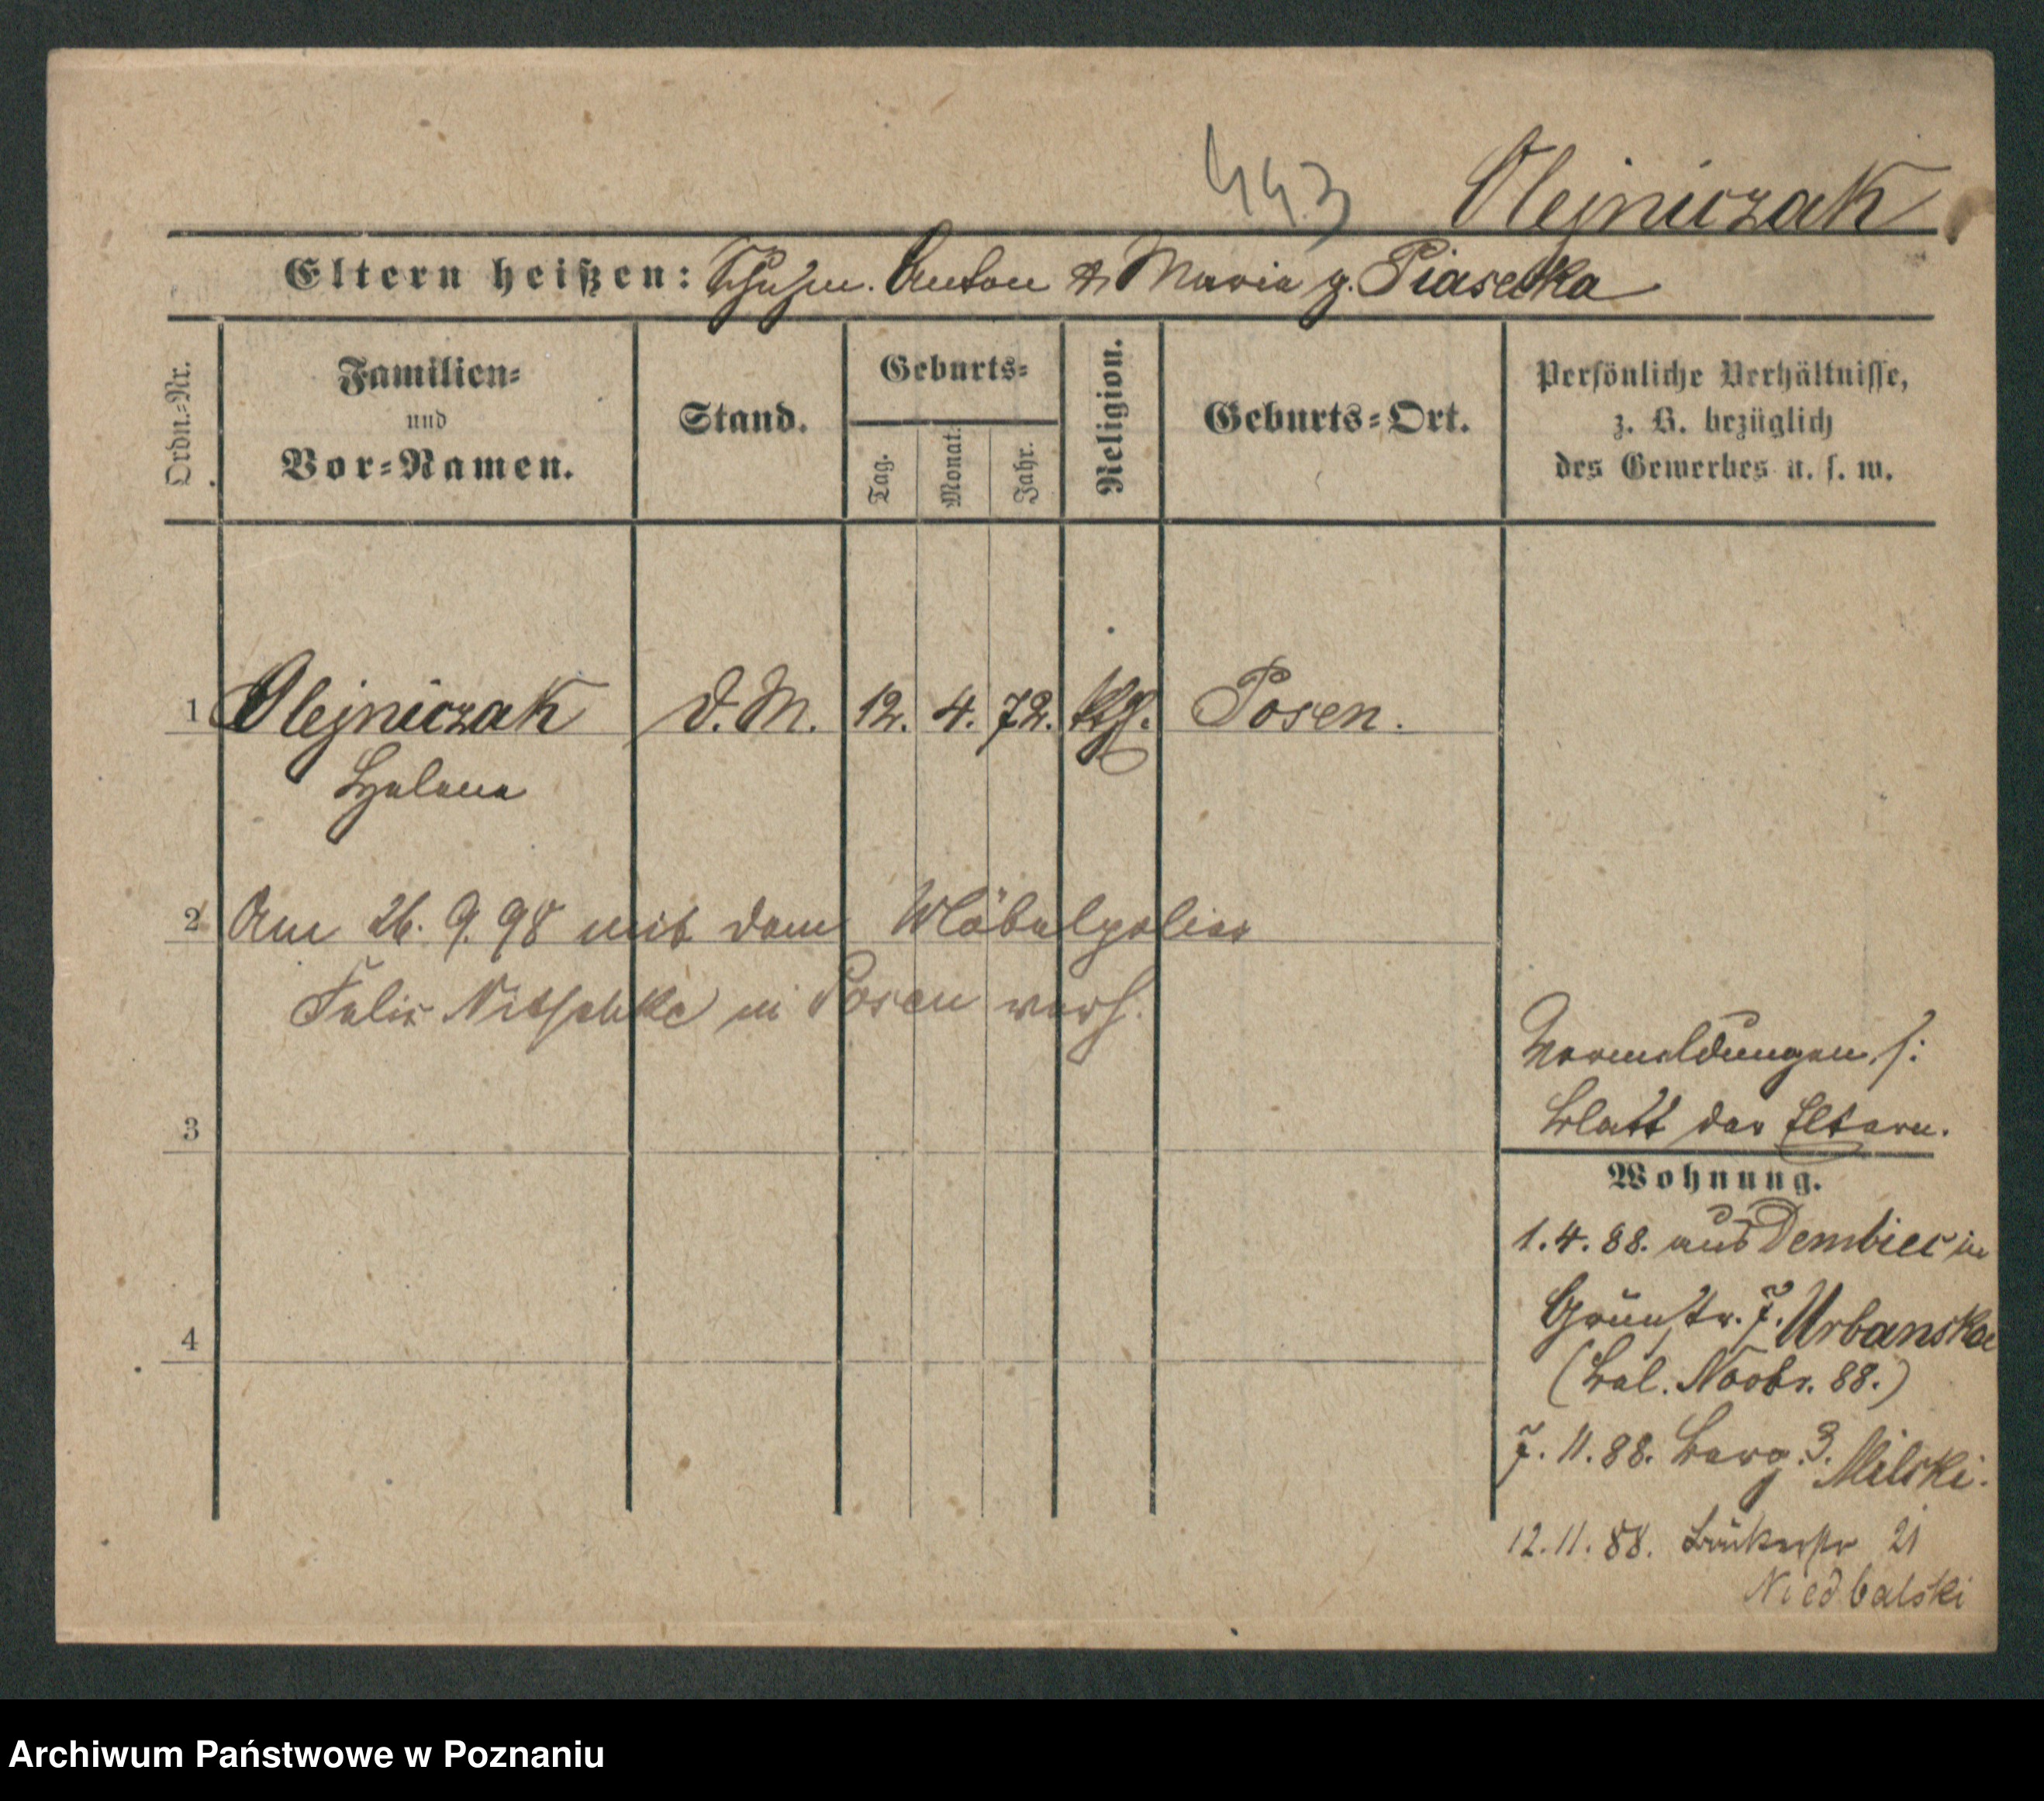 443 Olejniczak
Eltern heißen: Schuhm. Anton & Maria g. Piasecka
Ordn.-Nr.
Familien-
und
Vor-Namen.
Stand.
Geburts-
Tag.
Monat.
Jahr.
Religion.
Geburts-Ort.
Persönliche Verhältnisse,
z. B. bezüglich
des Gewerbes u. s. w.
1 Olejniczak D. M. 12. 4. 72. kth. Posen.
Helene
2 Am 26. 9. 98 mit dem Möbelpolier
Felix Nitschke in Posen verh.
3
Vormeldungen s:
Blatt der Eltern.
Wohnung.
1. 4. 88. aus Dembiec in
Grünstr. 7. Urbanska
4
(Bel. Novbr. 88.)
7. 11. 88. Berg. 3. Milski.
12. 11. 88. Bäckerstr 21
Niedbalski
Archiwum Państwowe w Poznaniu